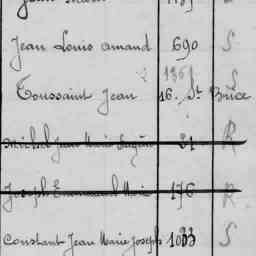 Jean Louis amand 690 S
1361 S
Toussaint Jean 16. St Brice
Michel Jean Marie Eugène 31 R
Joseph Emmanuel Marie 176 R
Constant Jean Marie Joseph 1033 S